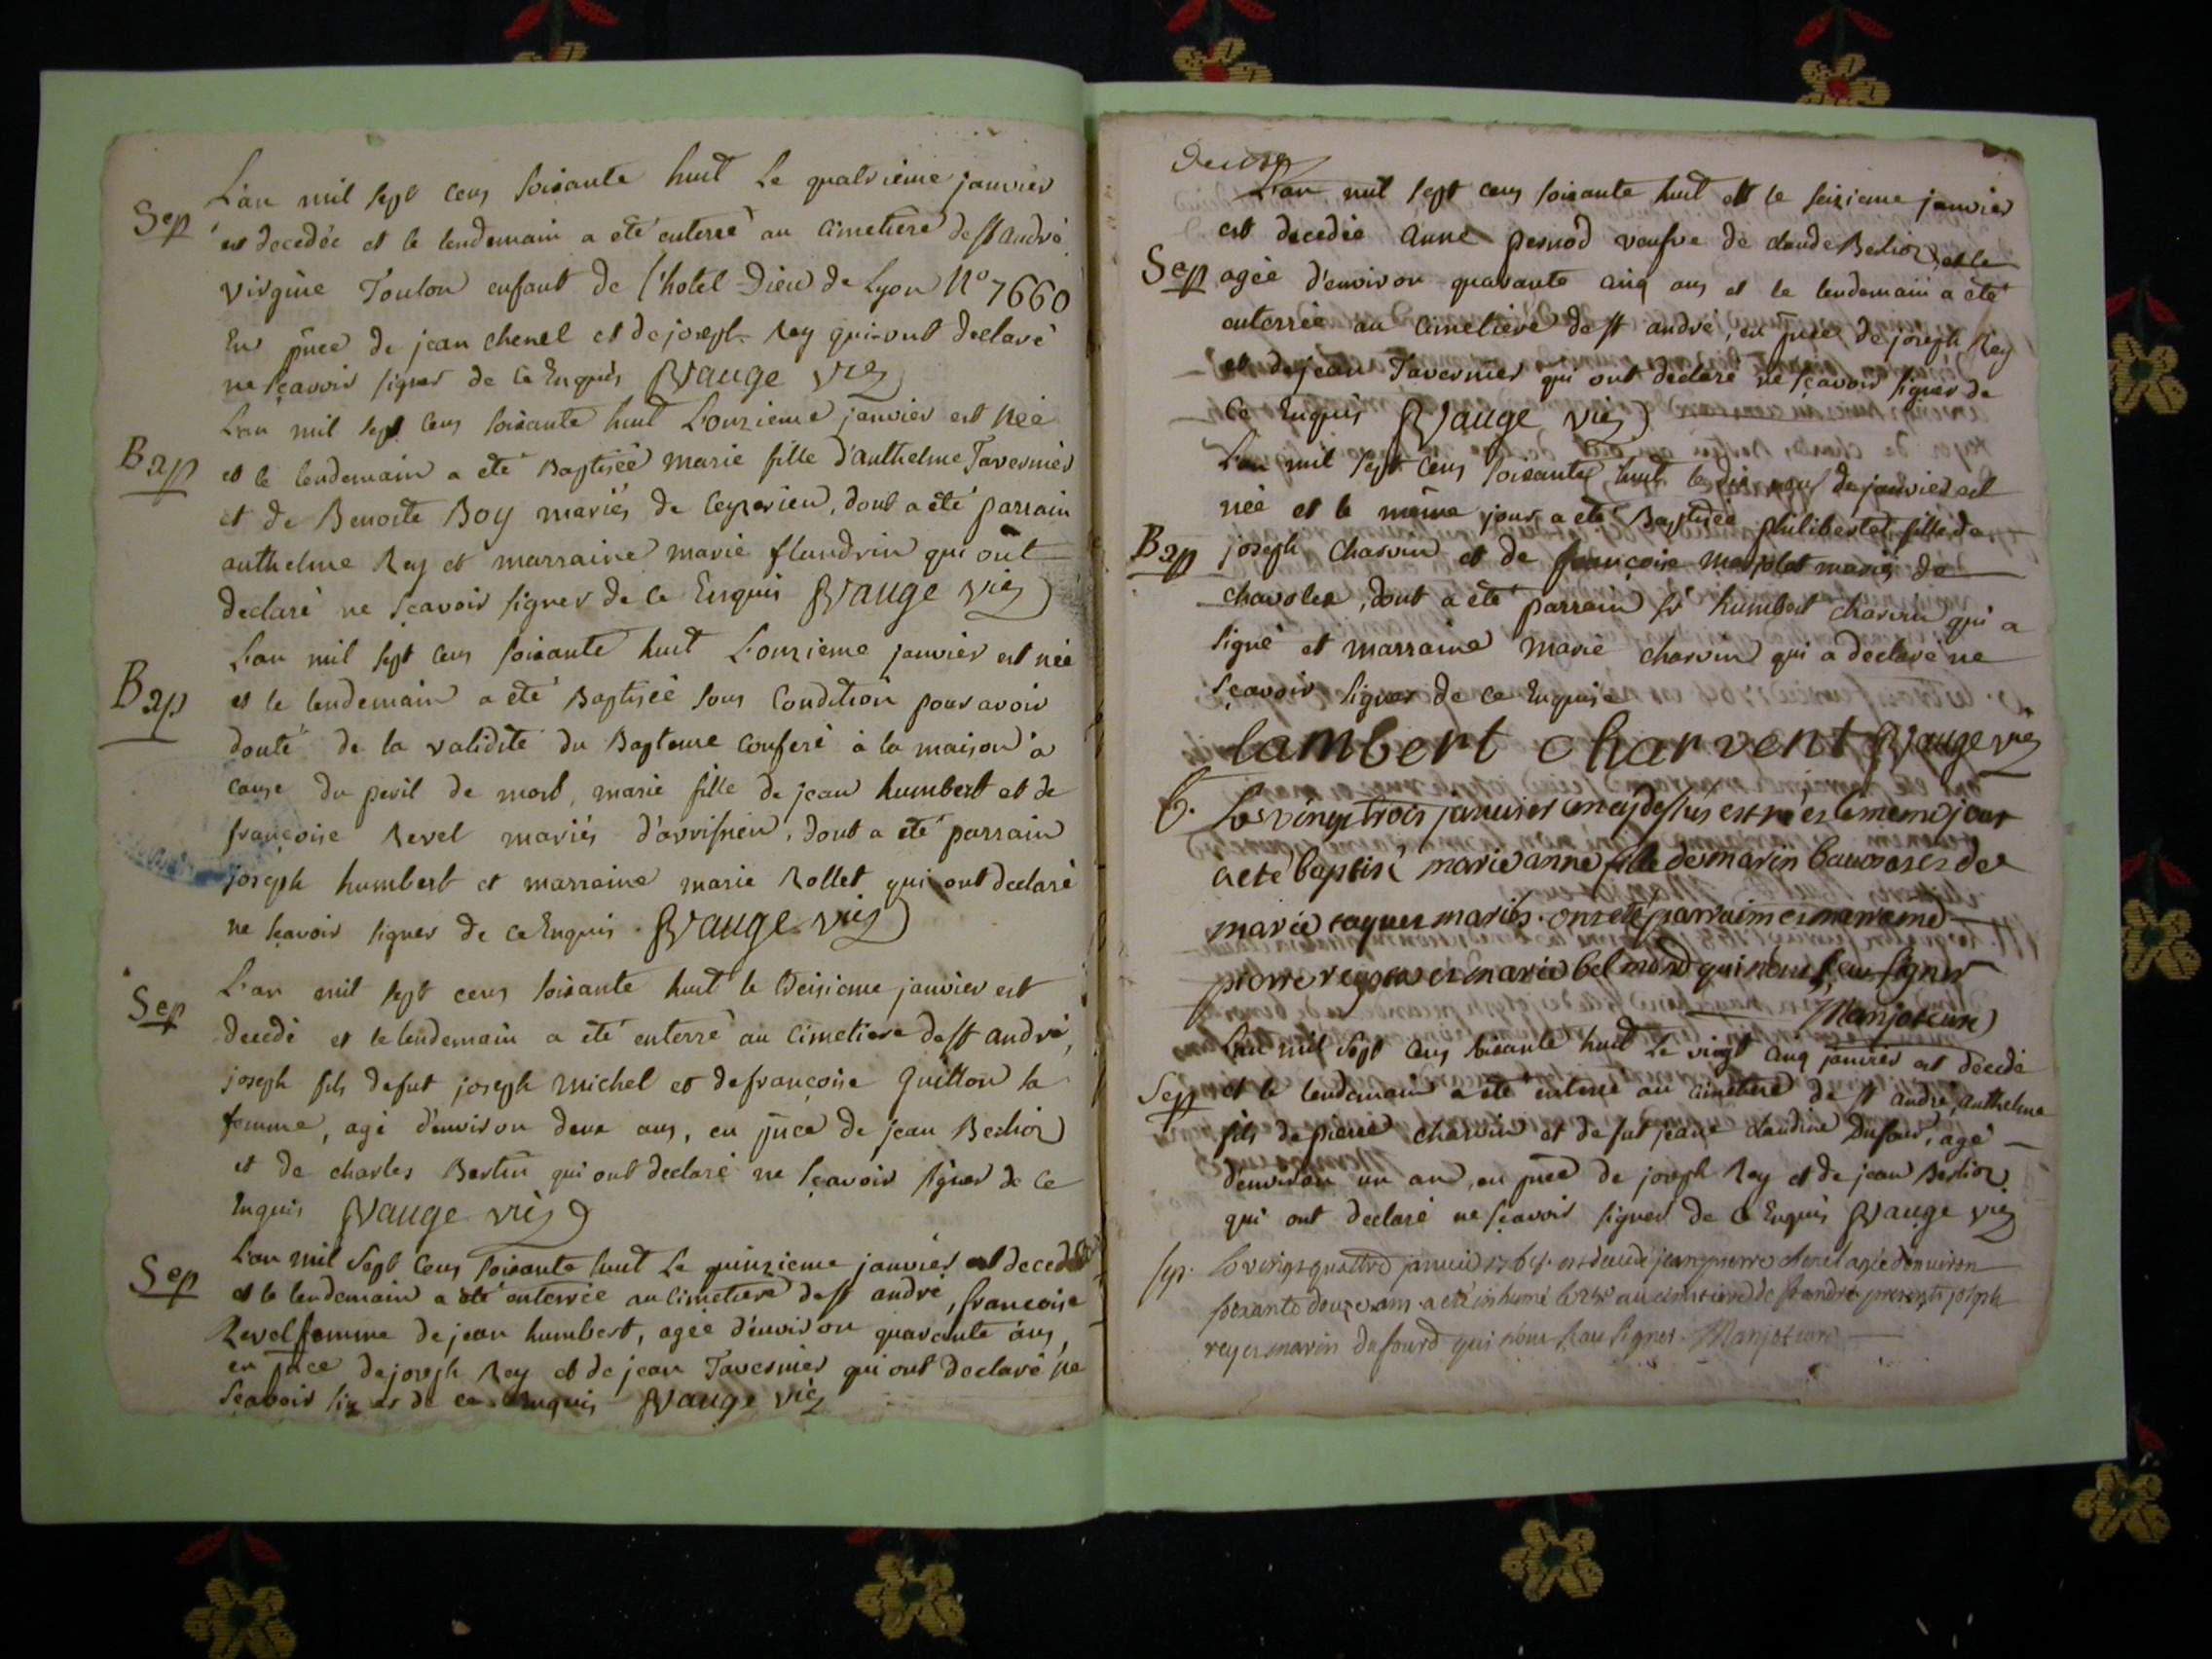 Sep
L'an mil sept cens soixante huit le quatrieme janvier
est decedée et le lendemain a eté enterrée au Cimetiere de st andré
virgine Toulon enfant de l'hotel-Dieu de Lyon N° 7660
En pñce de jean chenel et de joseph Rey qui ont declaré
ne sçavoir signer de ce Enquis Vauge vic
Bap
L'an mil sept cens soixante huit L'onzieme janvier est Neé
et le lendemain a eté Baptiseé marie fille d'anthelme Tavernier
et de Benoite Boy mariés de Ceyzerieu, dont a eté parrain
anthelme Rey et marraine marie flandrin qui ont
declaré ne sçavoir signer de ce Enquis Vauge vic
Bap
L'an mil sept cens soixante huit L'onzieme janvier est née
et le lendemain a eté Baptiseé sous Condition pour avoir
douté de la validité du Bapteme conferé à la maison à
cause du peril de mort, marie fille de jean humbert et de
françoise Revel mariés d'avrissieu, dont a eté parrain
joseph humbert et marraine marie Rollet qui ont declaré
ne sçavoir signer de ce Enquis Vauge vic
Sep
L'an mil sept cens soixante huit le treisieme janvier est
decedé et le lendemain a eté enterré au Cimetiere de st andré,
joseph fils de fut joseph michel et de françoise Guitton sa
femme, agé d'environ deux ans, en pñce de jean Berlioz
et de charles Bertin qui ont declaré ne sçavoir signer de ce
Enquis Vauge vic
Sep
L'an mil Sept Cens soixante huit Le quinzieme janvier est decedée
et le lendemain a eté enterrée au Cimetiere de st andré, françoise
Revel femme de jean humbert, agée d'environ quarante ans,
en pñce de joseph Rey et de jean Tavernier qui ont declaré ne
sçavoir signer de ce Enquis Vauge vic
Deuxe
L'an mil sept cens soixante huit et le seizieme janvier
est decedée anne pernod veufve de claude Berlioz
Sep
agée d'environ quarante cinq ans et le lendemain a eté
enterrée au Cimetiere de st andré, en pñce de joseph Rey
et de jean Tavernier qui ont declaré ne sçavoir signer de
Ce Enquis Vauge vic
L'an mil sept cens soixante huit le dix neuf de janvier est
née et le même jour a eté Baptisée philiberte fille de
Bap
joseph Charvin et de françoise mariés de
chavoley, dont a eté parrain sr humbert charvin qui a
signé et marraine Marie charvin qui a declaré ne
sçavoir signer de ce Enquise
lambert charvent Vauge vic
b.
Le vingt trois janvier est né et le meme jour
a eté baptisé marie anne fille de marin et de
marie mariés. ont eté parrain et marraine
pierre et marie belmond qui n'ont sceu signer
Manjot curé
L'an mil sept Cens soixante huit Le vingt cinq janvier est decedé
Sep
et le lendemain a eté enterré au Cimetiere de st andré, anthelme
fils de pierre charvin et de fut jeane claudine Dufour, agé
d'environ un an, en pñce de joseph Rey et de jean Berlioz
qui ont declaré ne sçavoir signer de ce Enquis Vauge vic
sep.
Le vingt quattre janvier 1768. est decedé jean pierre chenel agé d'environ
soixante douze ans a eté inhumé le 25e au cimetiere de st andré presents joseph
rey et marin dufourd qui n'ont sceu signer. Manjot curé